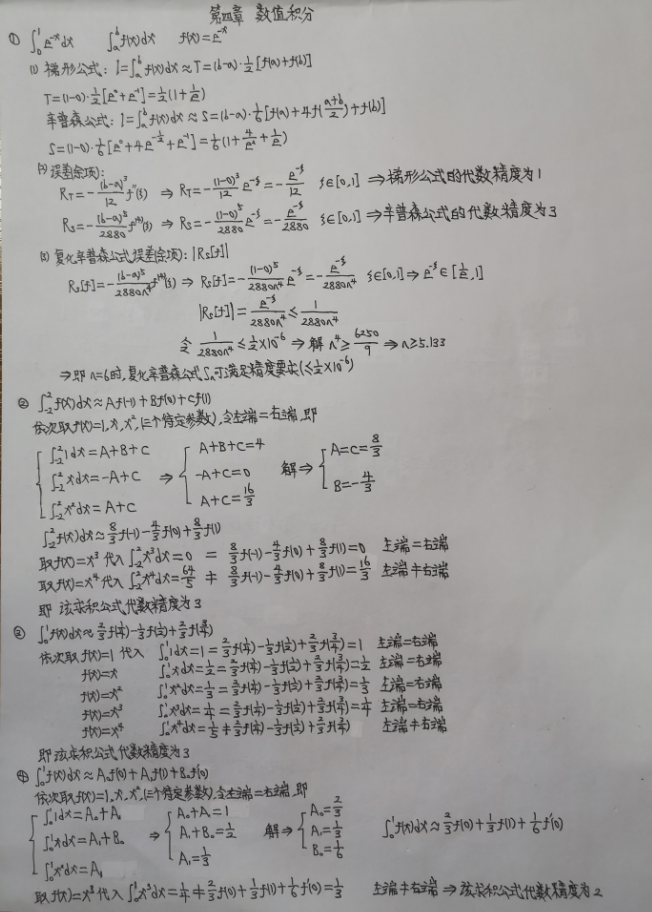 第四章 数值积分
① ∫₀¹e⁻ˣdx ∫ₐᵇf(x)dx f(x)=e⁻ˣ
(1) 梯形公式: I=∫ₐᵇf(x)dx≈T=(b-a)·1/2[f(a)+f(b)]
T=(1-0)·1/2[e⁰+e⁻¹]=1/2(1+1/e)
辛普森公式: I=∫ₐᵇf(x)dx≈S=(b-a)·1/6[f(a)+4f((a+b)/2)+f(b)]
S=(1-0)·1/6[e⁰+4e^(-1/2)+e⁻¹]=1/6(1+4/e^(1/2)+1/e)
(2) 误差余项:
R_T=-(b-a)³/12 f''(ξ) ⇒ R_T=-(1-0)³/12 e^(-ξ)=-e^(-ξ)/12 ξ∈[0,1] ⇒梯形公式的代数精度为1
R_S=-(b-a)⁵/2880 f⁽⁴⁾(ξ) ⇒ R_S=-(1-0)⁵/2880 e^(-ξ)=-e^(-ξ)/2880 ξ∈[0,1] ⇒辛普森公式的代数精度为3
(3) 复化辛普森公式误差余项: |R_S[f]|
R_S[f]=-(b-a)⁵/2880n⁴ f⁽⁴⁾(ξ) ⇒ R_S[f]=-(1-0)⁵/2880n⁴ e^(-ξ)=-e^(-ξ)/2880n⁴ ξ∈[0,1]⇒e^(-ξ)∈[1/e,1]
|R_S[f]|=e^(-ξ)/2880n⁴≤1/2880n⁴
令 1/2880n⁴≤1/2×10⁻⁶ ⇒解 n⁴≥6250/9 ⇒n≥5.133
⇒即 n=6时,复化辛普森公式Sₙ可满足精度要求(≤1/2×10⁻⁶)
② ∫₋₂²f(x)dx≈Af(-1)+Bf(0)+Cf(1)
依次取f(x)=1,x,x²,(三个待定参数),令左端=右端,即
∫₋₂²1dx=A+B+C A+B+C=4 A=C=8/3
∫₋₂²xdx=-A+C ⇒ -A+C=0 解⇒
∫₋₂²x²dx=A+C A+C=16/3 B=-4/3
∫₋₂²f(x)dx≈8/3f(-1)-4/3f(0)+8/3f(1)
取f(x)=x³代入∫₋₂²x³dx=0 = 8/3f(-1)-4/3f(0)+8/3f(1)=0 左端=右端
取f(x)=x⁴代入∫₋₂²x⁴dx=64/5 ≠ 8/3f(-1)-4/3f(0)+8/3f(1)=16/3 左端≠右端
即 该求积公式代数精度为3
③ ∫₀¹f(x)dx≈2/3f(1/4)-1/3f(1/2)+2/3f(3/4)
依次取 f(x)=1 代入 ∫₀¹1dx=1=2/3f(1/4)-1/3f(1/2)+2/3f(3/4)=1 左端=右端
f(x)=x ∫₀¹xdx=1/2=2/3f(1/4)-1/3f(1/2)+2/3f(3/4)=1/2 左端=右端
f(x)=x² ∫₀¹x²dx=1/3=2/3f(1/4)-1/3f(1/2)+2/3f(3/4)=1/3 左端=右端
f(x)=x³ ∫₀¹x³dx=1/4=2/3f(1/4)-1/3f(1/2)+2/3f(3/4)=1/4 左端=右端
f(x)=x⁴ ∫₀¹x⁴dx=1/5≠2/3f(1/4)-1/3f(1/2)+2/3f(3/4) 左端≠右端
即该求积公式代数精度为3
④ ∫₀¹f(x)dx≈A₀f(0)+A₁f(1)+B₀f'(0)
依次取f(x)=1,x,x²,(三个待定参数),令左端=右端,即
∫₀¹1dx=A₀+A₁ A₀+A₁=1 A₀=2/3
∫₀¹xdx=A₁+B₀ ⇒ A₁+B₀=1/2 解⇒ A₁=1/3 ∫₀¹f(x)dx≈2/3f(0)+1/3f(1)+1/6f'(0)
∫₀¹x²dx=A₁ A₁=1/3 B₀=1/6
取f(x)=x³代入∫₀¹x³dx=1/4≠2/3f(0)+1/3f(1)+1/6f'(0)=1/3 左端≠右端 ⇒该求积公式代数精度为2